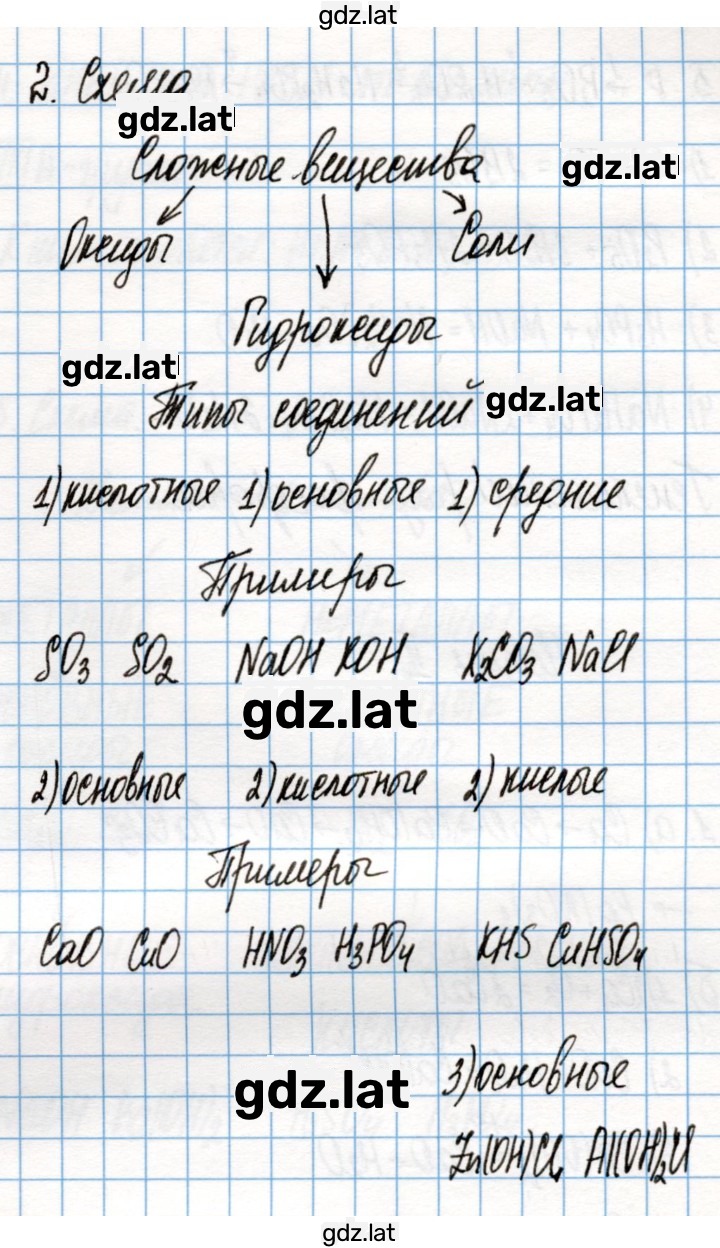 gdz.lat
2. Схема
gdz.lat
Сложные вещества
gdz.lat
Оксиды Соли
Гидроксиды
gdz.lat
Типы соединений
gdz.lat
1) кислотные 1) основные 1) средние
Примеры
SO3 SO2 NaOH KOH K2CO3 NaCl
gdz.lat
2) основные 2) кислотные 2) кислые
Примеры
CaO CuO HNO3 H3PO4 KHS CuHSO4
3) основные
gdz.lat
Zn(OH)Cl, Al(OH)2Cl
gdz.lat